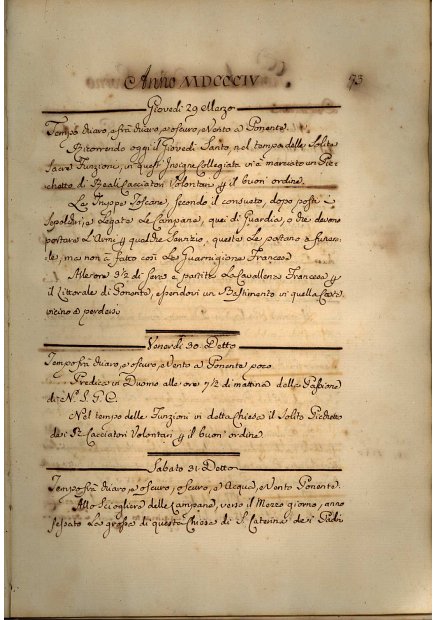 Anno MDCCCIV
73
Giovedi 29 Marzo
Tempo chiaro, e frà chiaro, e oscuro, e Vento a Ponente.
Ricorrendo oggi il Giovedi Santo, nel tempo delle Solite
Sacre Funzioni, in quest' Insigne Collegiata vi a marciato un Pic-
chetto di Reali Cacciatori Volontari p il buon' ordine.
Le Truppe Toscane, secondo il consueto, dopo posti i
Sepolcri, e Legate Le Campane, quei di Guardia, o che devono
portare L'Armi p qualche Servizio, queste Le portano a funera-
le, ma non à fatto così La Guarnigione Francese
Alle ore 3 1/2 di sera è partita La Cavalleria Francese p
il Littorale di Ponente, essendovi un Bastimento in quella Costa
vicino a perdersi
Venerdi 30. Detto
Tempo frà chiaro, e oscuro, e Vento a Ponente poco
Predica in Duomo alle ore 7 1/2 di mattina della Passione
di N. S. G. C.
Nel tempo delle Funzioni in detta Chiesa il Solito Picchetto
de i R. Cacciatori Volontari p il buon' ordine
Sabato 31. Detto
Tempo frà chiaro, e oscuro, e oscuro, e Acqua, e Vento Ponente.
Allo Sciogliere delle Campane, verso il Mezzo giorno, anno
la grossa di questa Chiesa di S. Caterina de i Padri